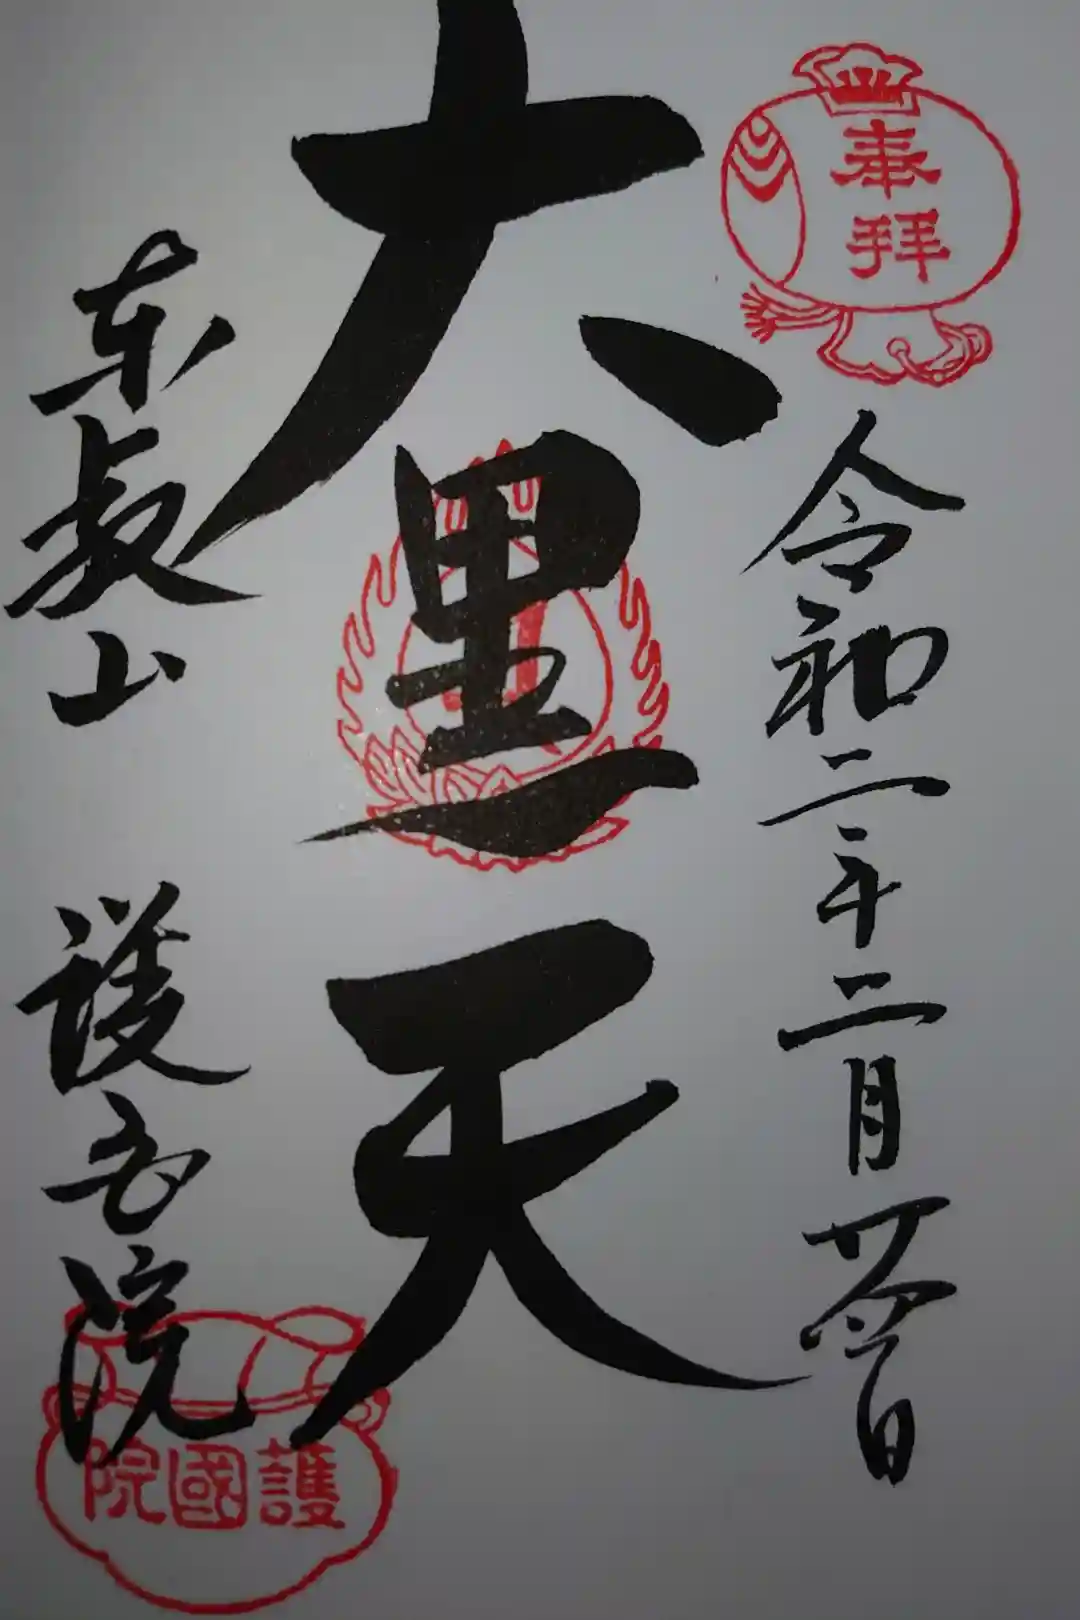 奉拝
令和二年二月廿日
大黒天
東叡山 護国院
護國院